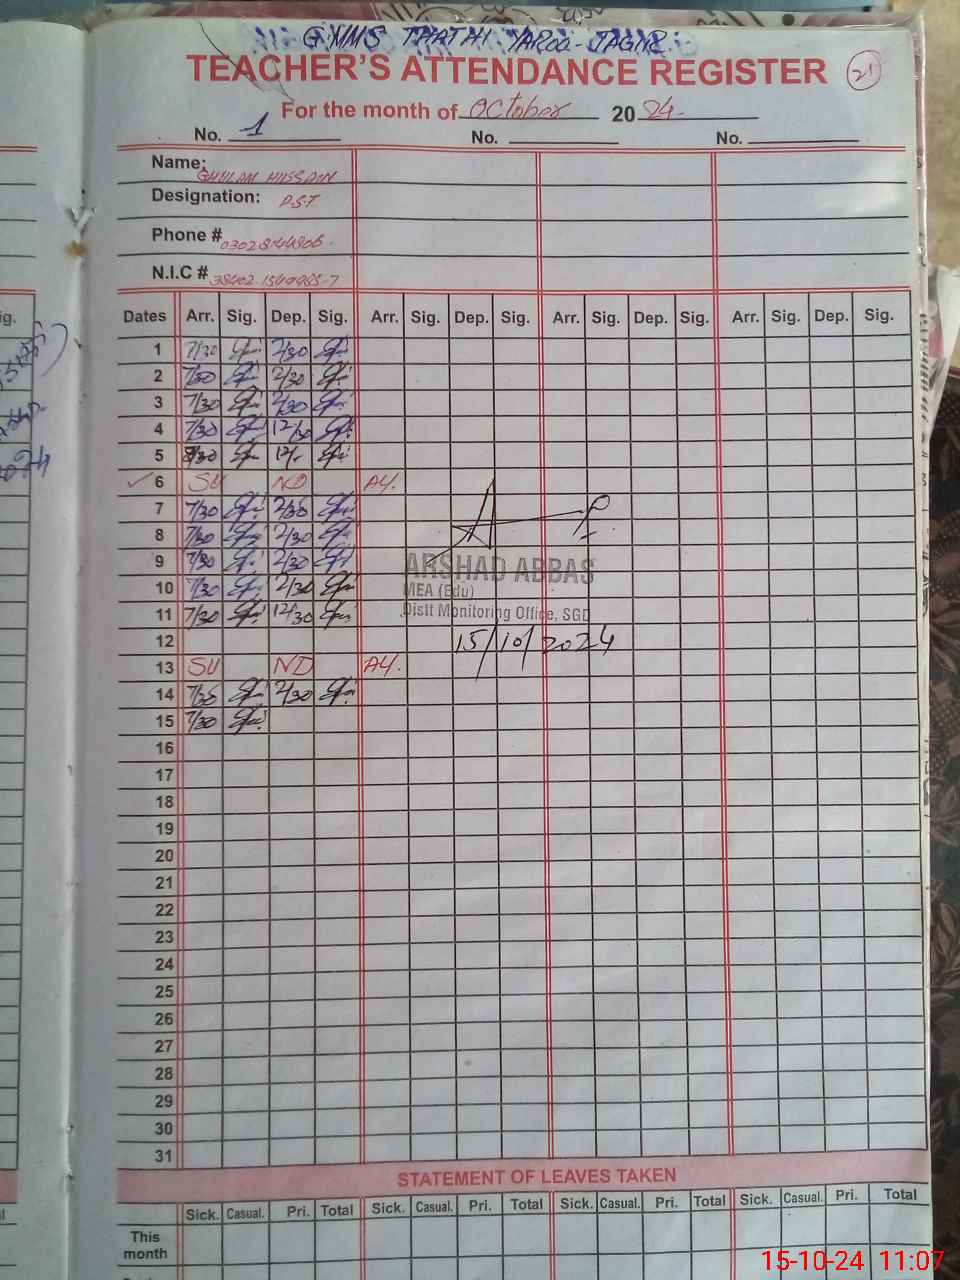 G.MMS THATHI YAROO-JAGIR
TEACHER'S ATTENDANCE REGISTER 21
For the month of October 2024.
No. 1 No. No.
Name: GHULAM HUSSAIN
Designation: PST
Phone #
N.I.C #
Dates Arr. Sig. Dep. Sig. Arr. Sig. Dep. Sig. Arr. Sig. Dep. Sig. Arr. Sig. Dep. Sig.
1 7/30 2/30
2 7/30 2/30
3 7/30 2/30
4 7/30 12/30
5 12/-
6 SU ND AY.
7 7/30 2/30
8 7/30 2/30
9 7/30 2/30
ARSHAD ABBAS
10 7/30 2/30
MEA (Edu)
11 7/30 12/30
Distt Monitoring Office, SGD
12
15/10/2024
13 SU ND AY.
14 7/30 2/30
15 7/30
16
17
18
19
20
21
22
23
24
25
26
27
28
29
30
31
STATEMENT OF LEAVES TAKEN
Sick. Casual. Pri. Total Sick. Casual. Pri. Total Sick. Casual. Pri. Total Sick. Casual. Pri. Total
This
month
15-10-24 11:07